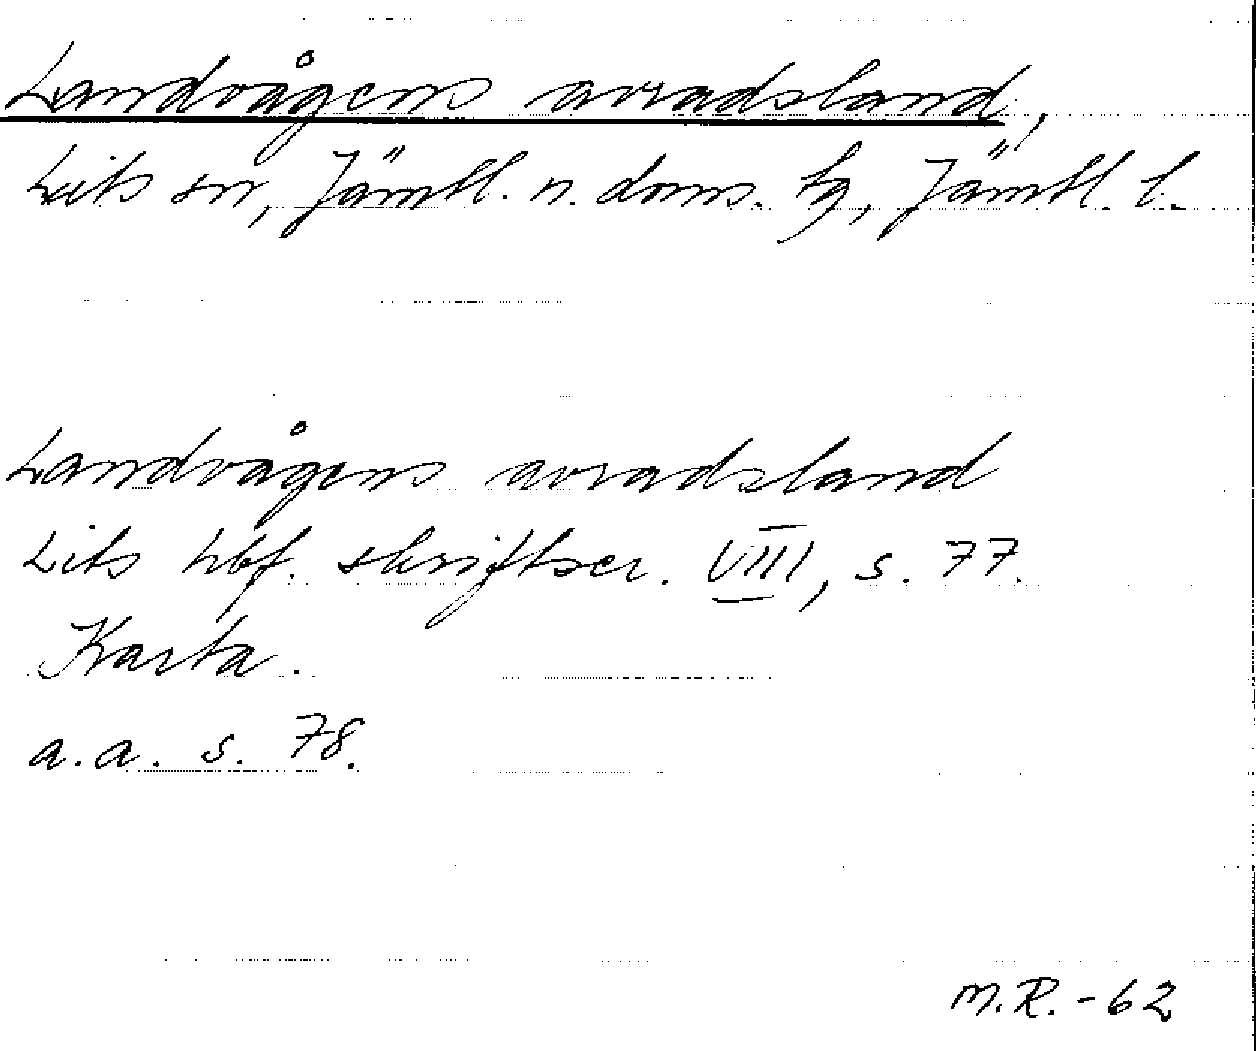 Landvågens avradsland,
Lits sn, Jämtl. n. doms. tg, Jämtl. l.
Landvågens avradsland
Lits hbf. skriftser. VIII, s. 77.
Karta.
a.a. s. 78.
M.R. - 62